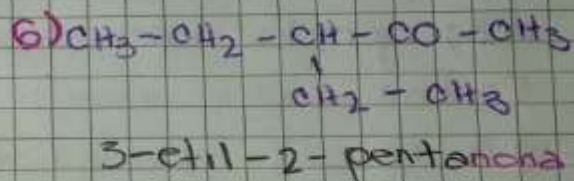 6) CH3 - CH2 - CH - CO - CH3
CH2 - CH3
3-etil-2-pentanona